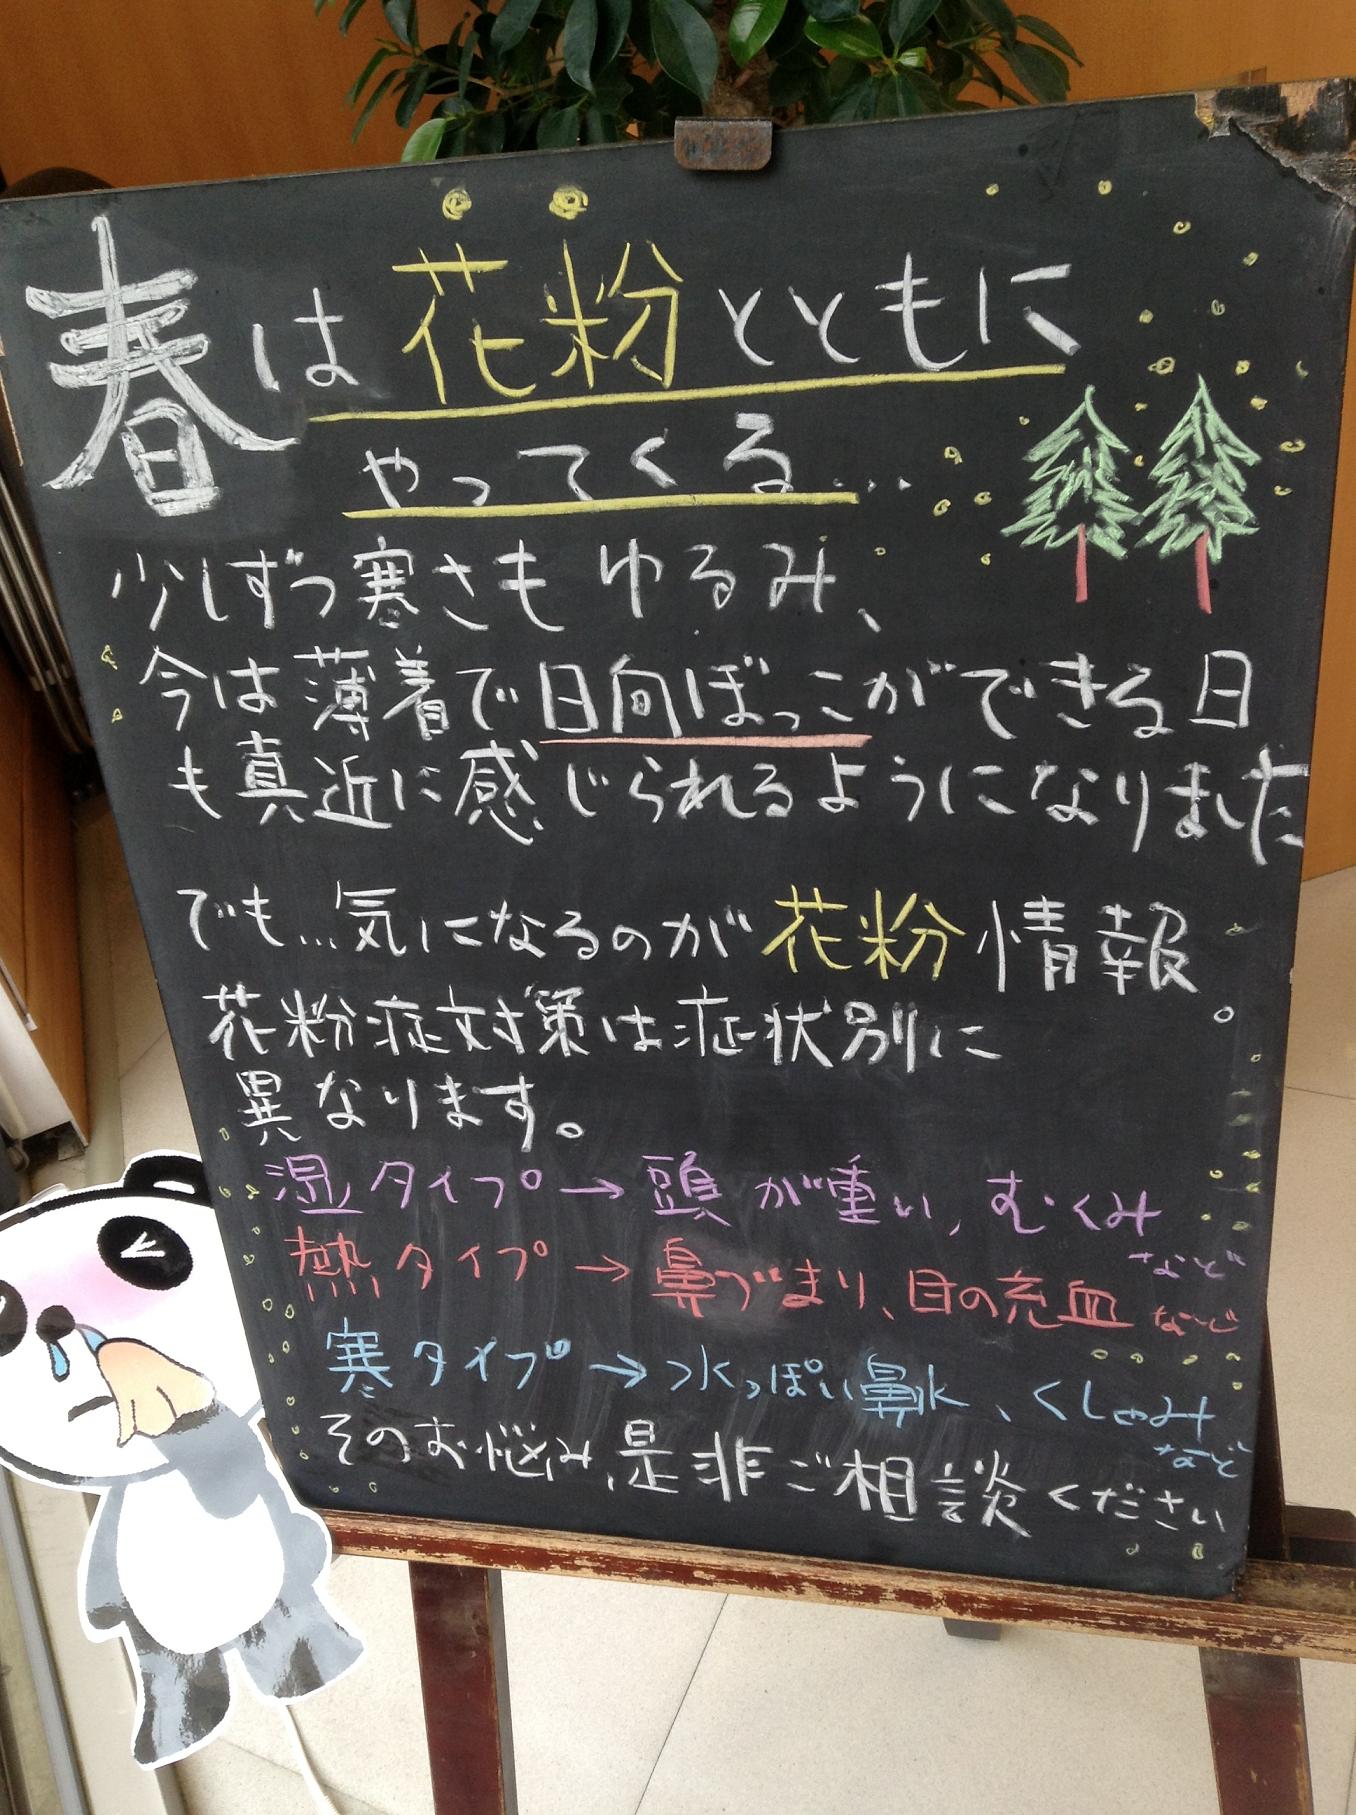 春は花粉とともに
やってくる...
少しずつ寒さもゆるみ、
今は薄着で日向ぼっこができる日
も真近に感じられるようになりました
でも...気になるのが花粉情報
花粉症対策は症状別に
異なります。
湿タイプ→頭が重い,むくみ
など
熱タイプ→鼻づまり、目の充血など
寒タイプ→水っぽい鼻水、くしゃみ
など
そのお悩み,是非ご相談ください